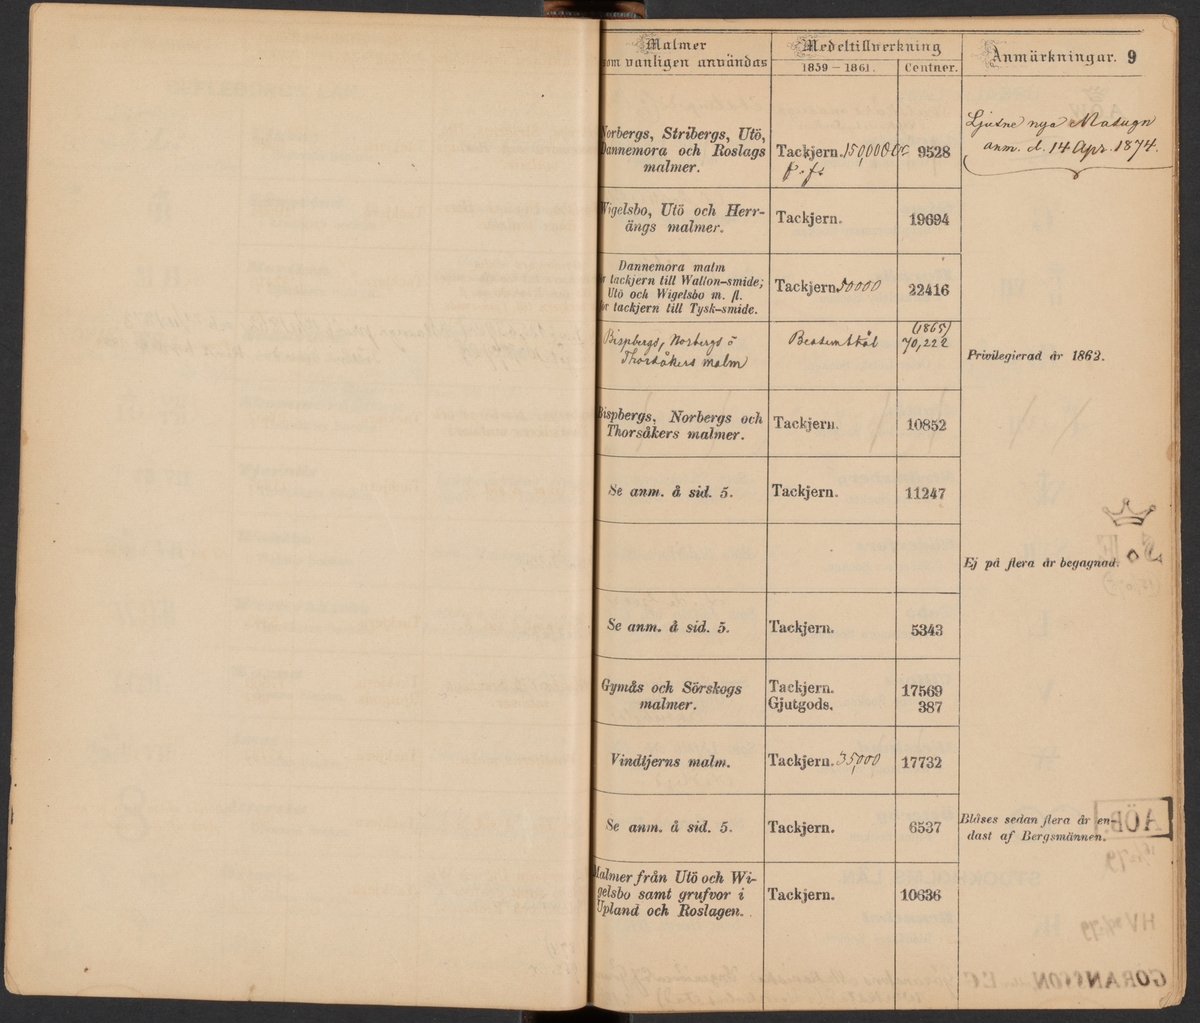 Malmer
som vanligen användas
Medeltillverkning
1859 – 1861.
Centner.
Anmärkningar. 9
Norbergs, Stribergs, Utö,
Dannemora och Roslags
malmer.
Tackjern. 150,000
9528
Ljusne nya Masugn
anm. d. 14 Apr. 1874.
Wigelsbo, Utö och Herr-
ängs malmer.
Tackjern.
19694
Dannemora malm
för tackjern till Wallon-smide;
Utö och Wigelsbo m. fl.
för tackjern till Tysk-smide.
Tackjern. 50000
22416
Bispbergs, Norbergs o
Thorsåkers malm
Bessemerstål
(1865)
70,222
Privilegierad år 1863.
Bispbergs, Norbergs och
Thorsåkers malmer.
Tackjern.
10852
Se anm. å sid. 5.
Tackjern.
11247
Ej på flera år begagnad.
Se anm. å sid. 5.
Tackjern.
5343
Gymås och Sörskogs
malmer.
Tackjern.
Gjutgods.
17569
387
Vindtjerns malm.
Tackjern. 35,000
17732
Se anm. å sid. 5.
Tackjern.
6537
Blåses sedan flera år en-
dast af Bergsmännen.
Malmer från Utö och Wi-
gelsbo samt grufvor i
Upland och Roslagen.
Tackjern.
10636